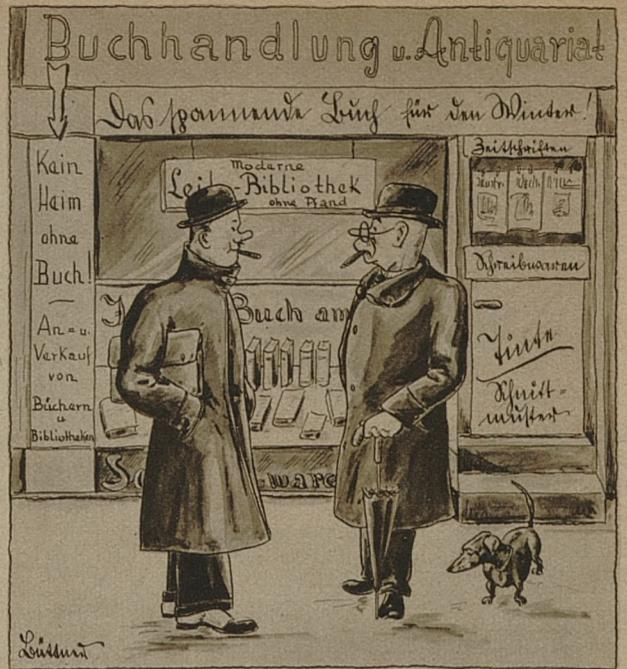 Buchhandlung u. Antiquariat
Das spannende Buch für den Winter!
Kein
Heim
ohne
Buch!
An= u.
Verkauf
von
Büchern
u
Bibliotheken
Moderne
Leih-Bibliothek
ohne Pfand
Buch am
Zeitschriften
Woch
Schreibwaren
Tinte
Schnitt=
muster
ware
Büttner